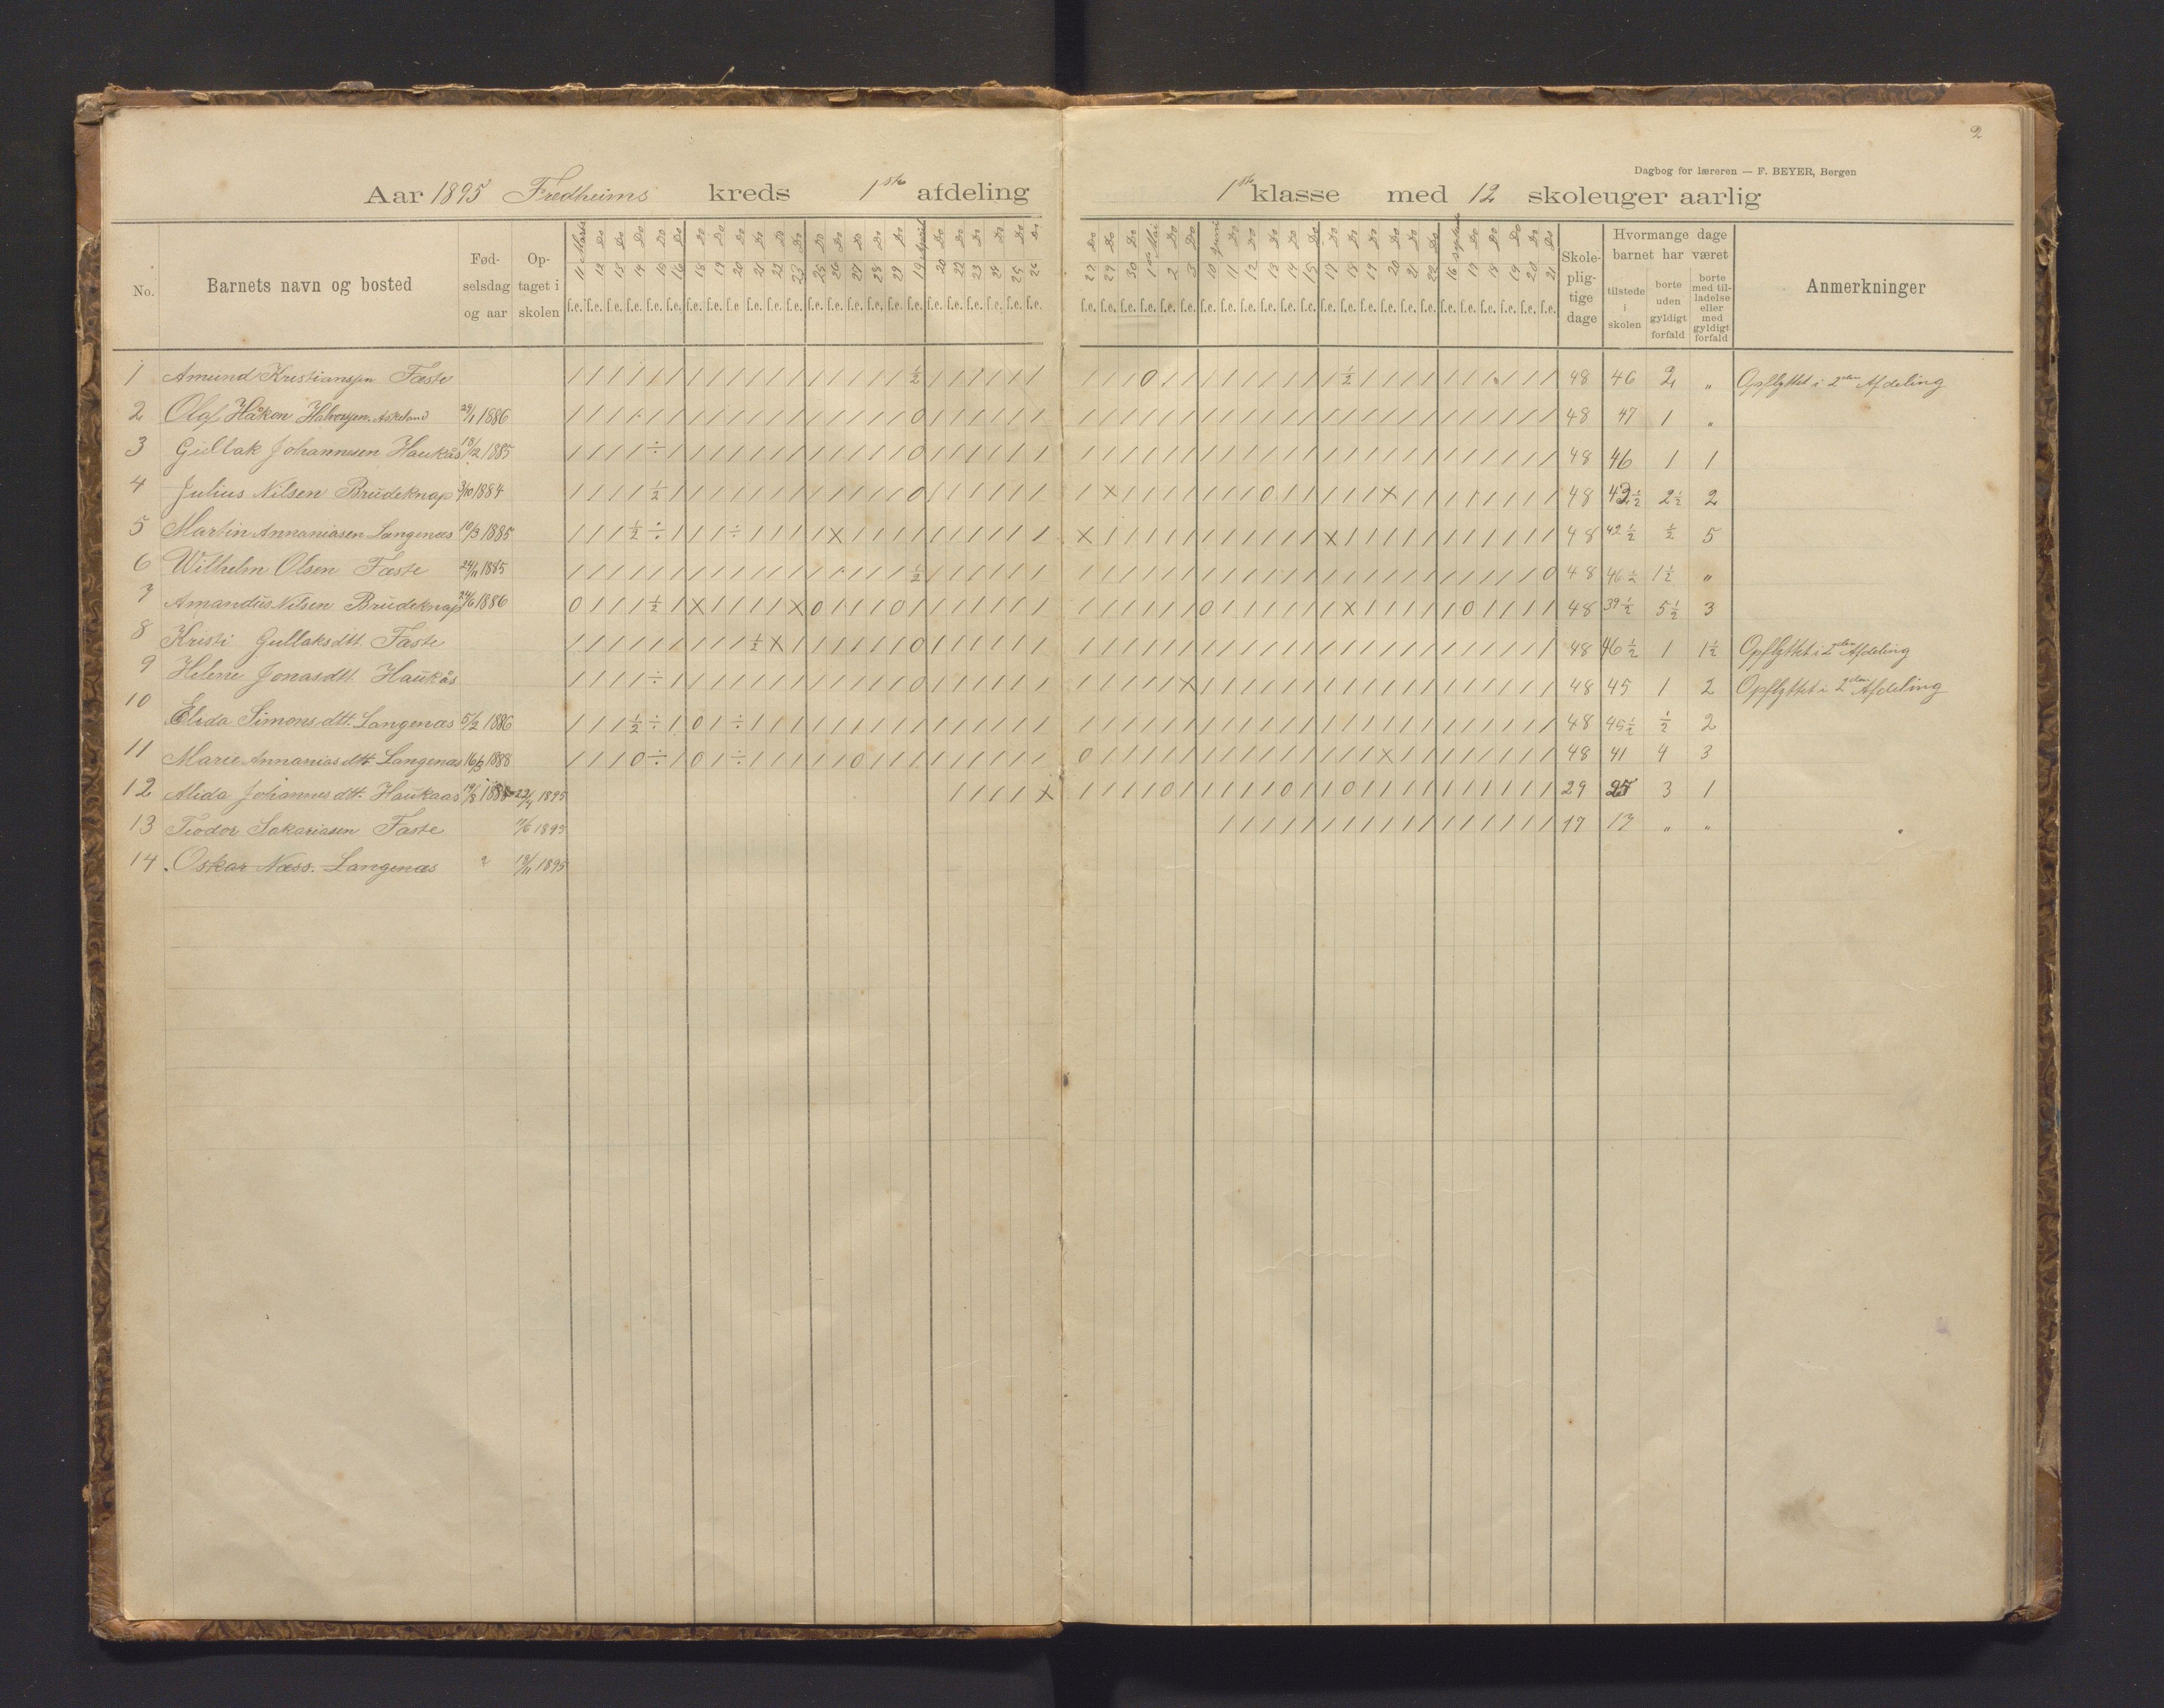 2
Dagbog for læreren — F. BEYER, Bergen
Aar 1895 Fredheims kreds 1ste afdeling 1ste klasse med 12 skoleuger aarlig
No. Barnets navn og bosted Fødselsdag og aar Optaget i skolen Skolepligtige dage Hvormange dage barnet har været tilstede i skolen borte uden gyldigt forfald borte med tilladelse eller med gyldigt forfald Anmerkninger
11 Marts 12 13 14 15 16 18 19 20 21 22 23 25 26 27 28 29 19 April 20 22 23 24 25 26
27 29 30 1 Mai 2 3 10 Juni 11 12 13 14 15 17 18 19 20 21 22 16 Septr 17 18 19 20 21
1 Amund Kristiansen Fæste 48 46 2 " Opflyttet i 2den Afdeling
2 Olaf Håkon Halvorsen Askeland 29/1 1886 48 47 1 "
3 Gullak Johannesen Haukås 18/2 1885 48 46 1 1
4 Julius Nilsen Brudeknap 3/10 1884 48 43½ 2½ 2
5 Martin Annaniasen Langenæs 10/3 1885 48 42½ ½ 5
6 Wilhelm Olsen Fæste 24/11 1885 48 46½ 1½ "
7 Amandus Nilsen Brudeknap 24/6 1886 48 39½ 5½ 3
8 Kristi Gullaksdtt. Fæste 48 46½ 1 1½ Opflyttet i 2den Afdeling
9 Helene Jonasdtt. Haukås 48 45 1 2 Opflyttet i 2den Afdeling
10 Elida Simonsdtt. Langenæs 5/2 1886 48 45½ ½ 2
11 Marie Annaniasdtt. Langenæs 16/3 1888 48 41 4 3
12 Alida Johannesdtt. Haukaas 19/8 1888 22/4 1895 29 25 3 1
13 Teodor Sakariasen Fæste 11/6 1895 17 17 " "
14 Oskar Næss. Langenæs ? 18/11 1895